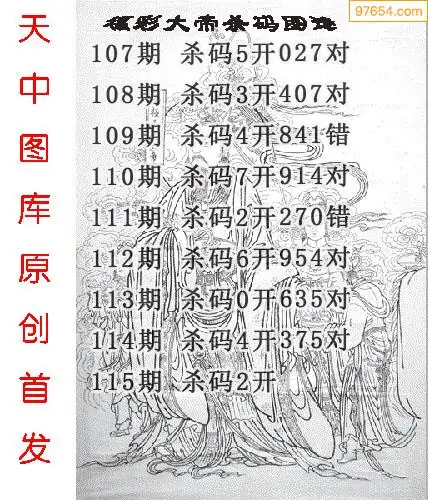 97654.com
福彩大帝杀码图迷
107期 杀码5开027对
108期 杀码3开407对
109期 杀码4开841错
110期 杀码7开914对
111期 杀码2开270错
112期 杀码6开954对
113期 杀码0开635对
114期 杀码4开375对
115期 杀码2开
天中图库原创首发